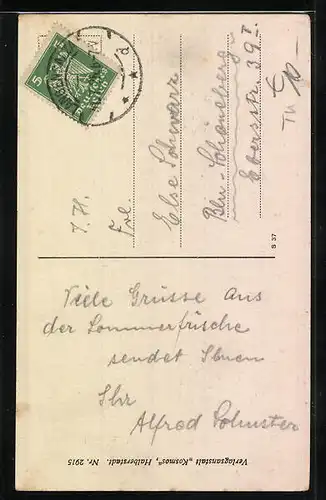 I. H.
Frl.
Else Schwarz
Bln-Schöneberg
Ebersstr. 39 I.
Th
5 5
d
S 37
Viele Grüsse aus
der Sommerfrische
sendet Ihnen
Ihr
Alfred Schuster
Verlagsanstalt „Kosmos", Halberstadt. Nr. 2915